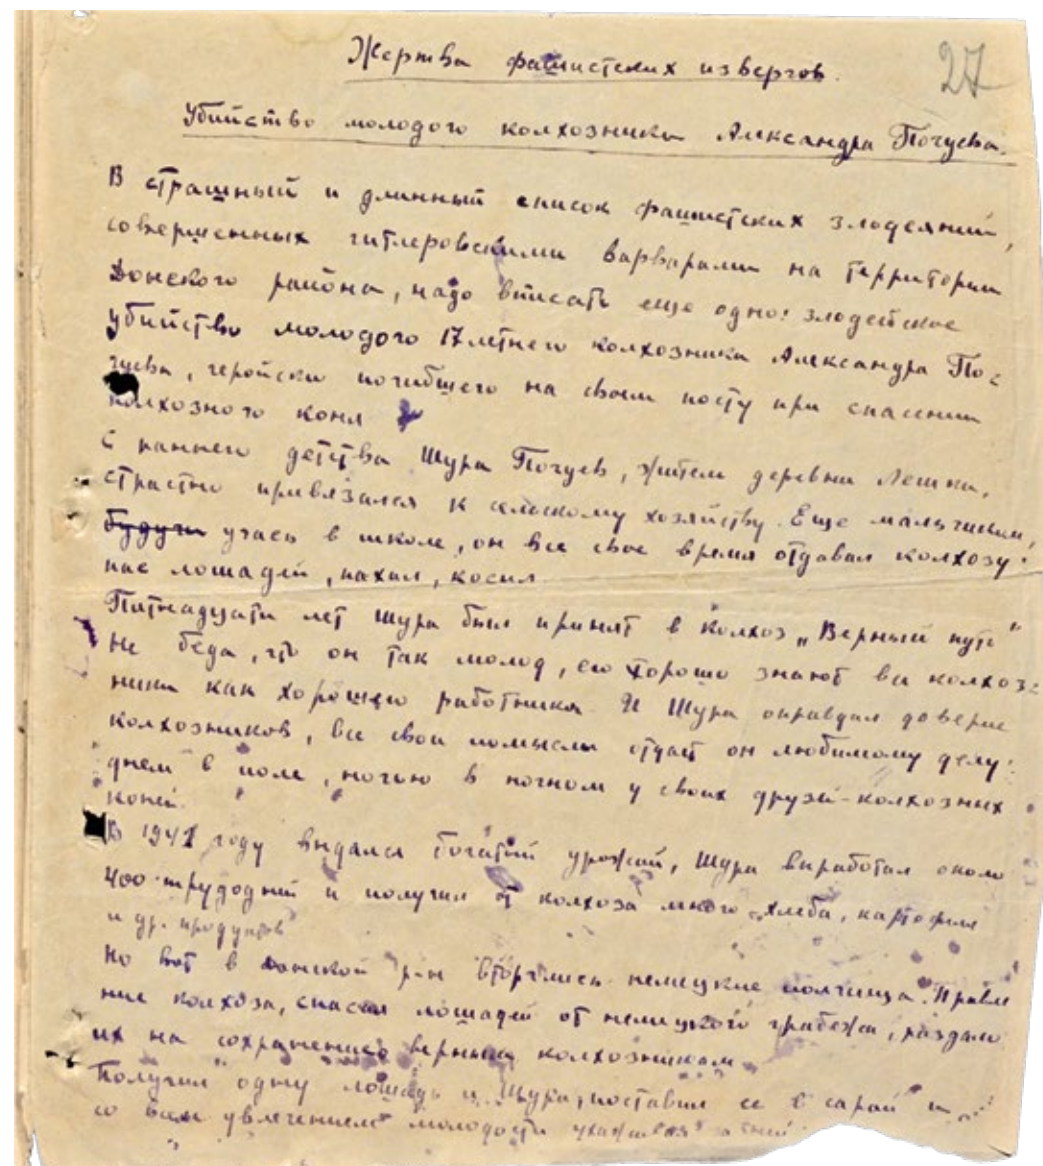 27
Жертва фашистских извергов.
Убийство молодого колхозника Александра Почуева.
В страшный и длинный список фашистских злодеяний,
совершенных гитлеровскими варварами на территории
Донского района, надо вписать еще одно: злодейское
убийство молодого 17летнего колхозника Александра По-
чуева, геройски погибшего на своем посту при спасении
колхозного коня
С раннего детства Шура Почуев, житель деревни Лешки,
страстно привязался к сельскому хозяйству. Еще мальчиком,
будучи учась в школе, он все свое время отдавал колхозу:
пас лошадей, пахал, косил
Пятнадцати лет Шура был принят в колхоз „Верный путь“
Не беда, что он так молод, его хорошо знают все колхоз-
ники как хорошего работника. И Шура оправдал доверие
колхозников, все свои помыслы отдает он любимому делу:
днем в поле, ночью в ночном у своих друзей-колхозных
коней.
В 1941 году выдался богатый урожай, Шура выработал около
400 трудодней и получил от колхоза много хлеба, картофеля
и др. продуктов
Но вот в Донской р-н вторглись немецкие полчища. Правле
ние колхоза, спасая лошадей от немецкого грабежа, раздало
их на сохранение верным колхозникам.
Получил одну лошадь и Шура, поставил ее в сарай и
со всем увлечением молодости ухаживал за ней.